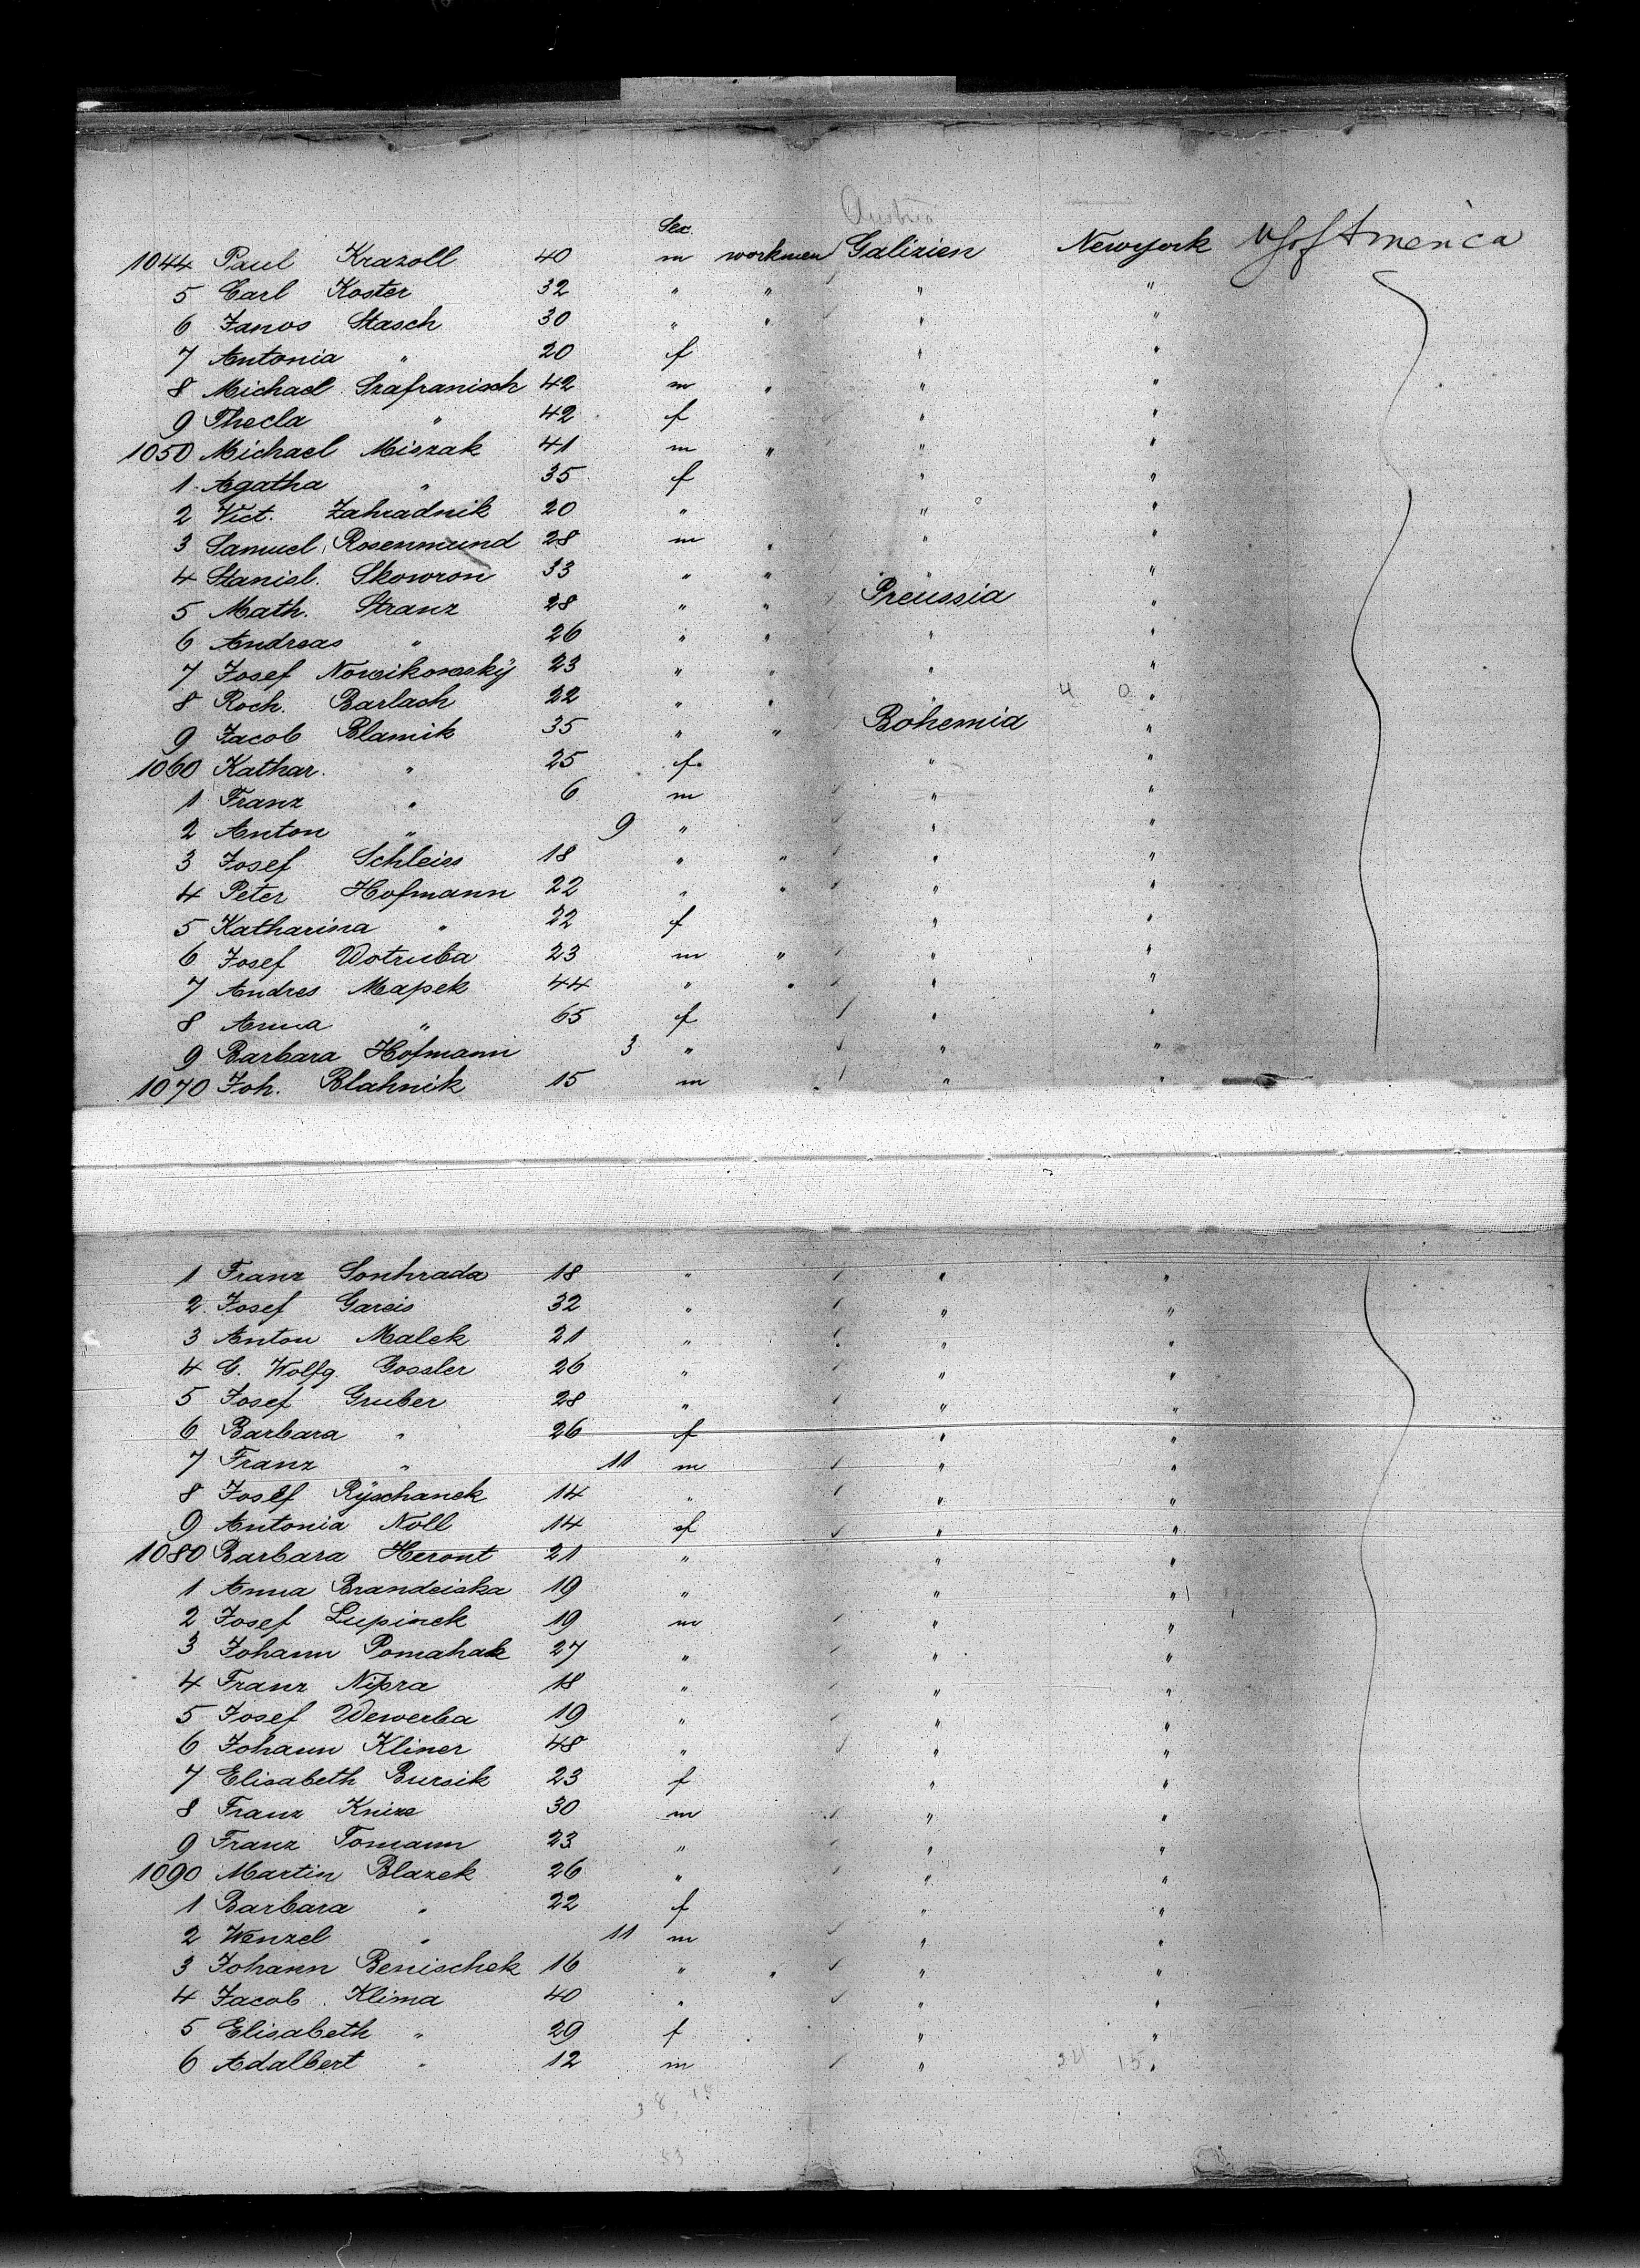 Austria
Sex.
1044 Paul Krazoll 40 m workmen Galizien Newyork USofAmerica
5 Carl Koster 32 " " " "
6 Janos Stasch 30 " " " "
7 Antonia " 20 f " "
8 Michael Szafranisch 42 m " " "
9 Thecla " 42 f " "
1050 Michael Miszak 41 m " " "
1 Agatha " 35 f " "
2 Vict. Zahradnik 20 " " "
3 Samuel Rosenmund 28 m " " "
4 Stanisl. Skowron 33 " " " "
5 Math. Stranz 28 " " Preussia "
6 Andreas " 26 " " " "
7 Josef Nowikowsky 23 " " " "
8 Roch. Barlach 22 " " " 4 0 "
9 Jacob Blamik 35 " " Bohemia "
1060 Kathar. " 25 f " "
1 Franz " 6 m " "
2 Anton " 9 " " "
3 Josef Schleiss 18 " " " "
4 Peter Hofmann 22 " " " "
5 Katharina " 22 f " "
6 Josef Wotruba 23 m " " "
7 Andres Mapek 44 " " " "
8 Anna " 65 f " "
9 Barbara Hofmann 3 " " "
1070 Joh. Blahnik 15 m " "
1 Franz Sonhrada 18 " " "
2 Josef Gareis 32 " " "
3 Anton Malek 21 " " "
4 G. Wolfg. Gossler 26 " " "
5 Josef Gruber 28 " " "
6 Barbara " 26 f " "
7 Franz " 11 m " "
8 Josef Ryschanek 14 " " "
9 Antonia Noll 14 f " "
1080 Barbara Heront 21 " " "
1 Anna Brandeiska 19 " " "
2 Josef Lupinek 19 m " "
3 Johann Pomahak 27 " " "
4 Franz Nipra 18 " " "
5 Josef Wewerba 19 " " "
6 Johann Kliner 48 " " "
7 Elisabeth Bursik 23 f " "
8 Franz Knize 30 m " "
9 Franz Tomann 23 " " "
1090 Martin Blazek 26 " " "
1 Barbara " 22 f " "
2 Wenzel " 11 m " "
3 Johann Benischek 16 " " " "
4 Jacob Klima 40 " " "
5 Elisabeth " 29 f " "
6 Adalbert " 12 m " 34 15 "
38 15
53